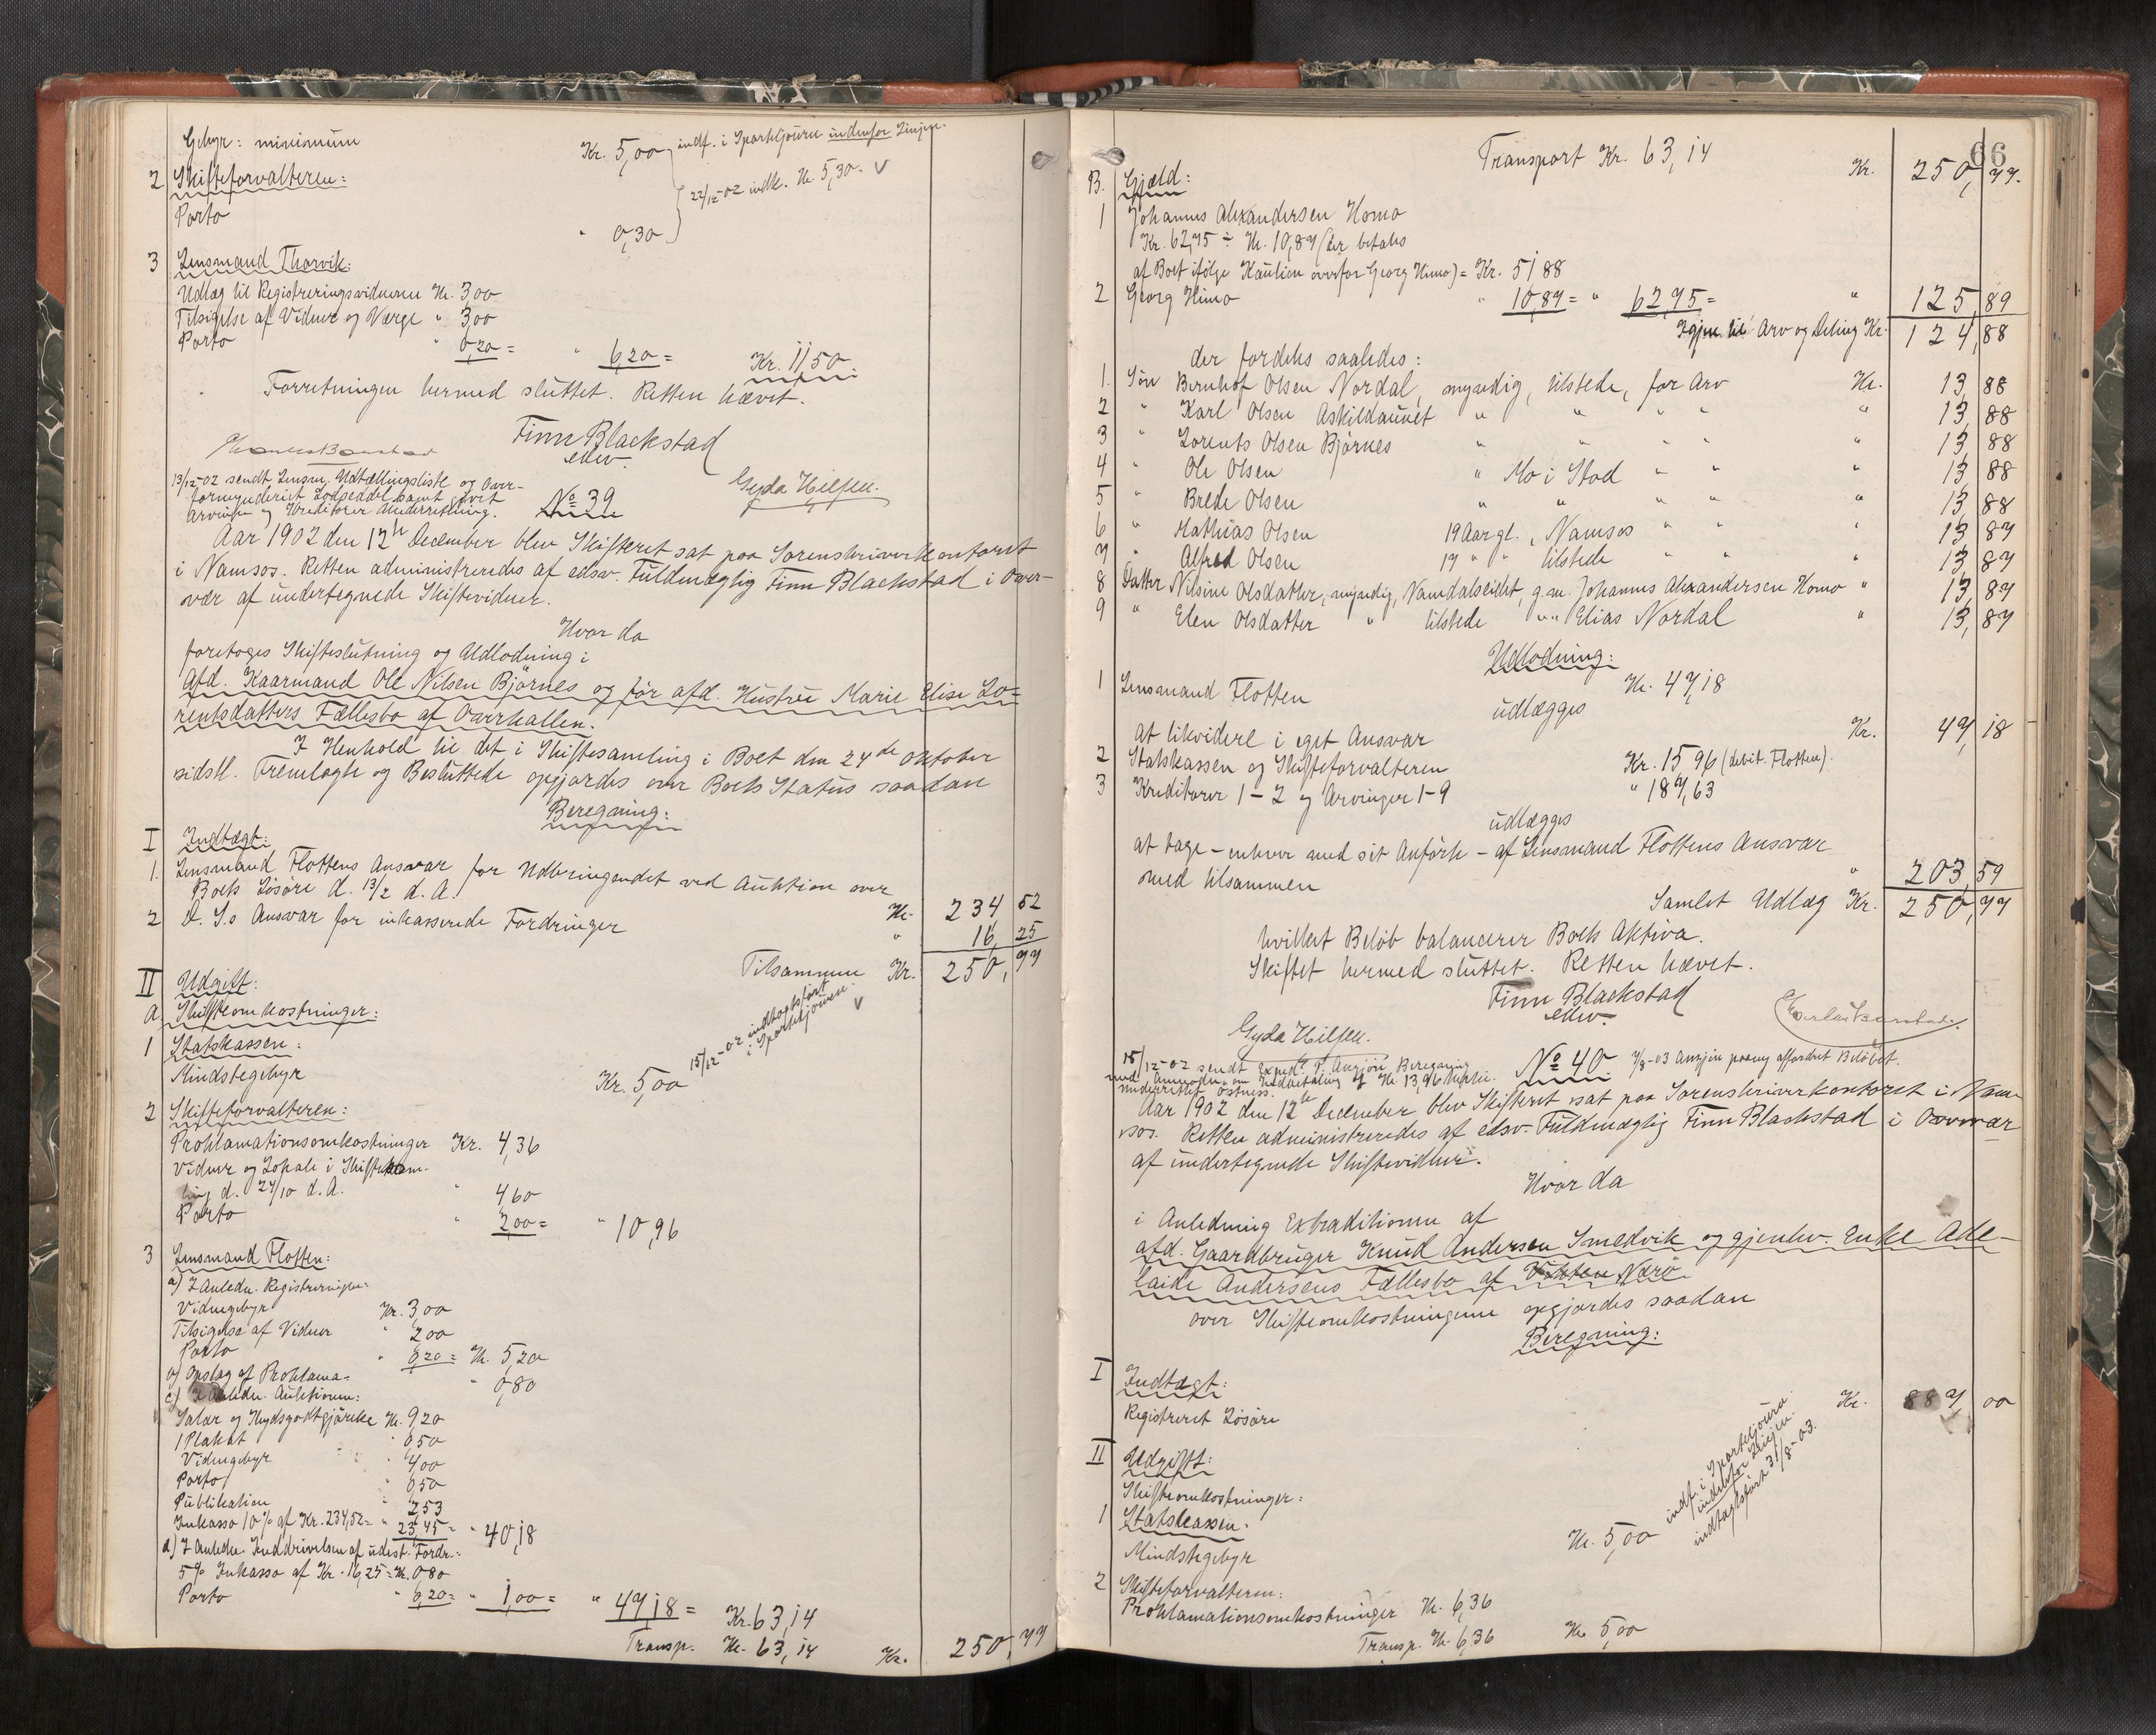 Gebyr: minimum Kr. 5,00 indf. i Sporteljourn. indenfor Linjen.
2 Skifteforvalteren: 22/12-02 indk. Kr. 5,30. V
Porto " 0,30
3 Lensmand Thorvik:
Udlæg til Registreringsvidnerne Kr. 3,00
Tilsigelse af Vidner og Værge " 3,00
Porto " 0,20 = " 6,20 = Kr. 11,50
Forretningen hermed sluttet. Retten hævet.
Finn Blackstad
edsv.
Gyda Hilsen.
13/12-02 sendt Lensm. Udtællingsliste og Over-
formynderiet Lodseddel samt givet
Arvinger og Kreditorer Underretning. No 39
Aar 1902 den 12te December blev Skifteret sat paa Sorenskriverkontoret
i Namsos. Retten administreredes af edsv. Fuldmægtig Finn Blackstad i Over-
vær af undertegnede Skiftevidner.
Hvor da
foretoges Skifteslutning og Udlodning i
Afd. Kaarmand Ole Nilsen Bjørnes og før afd. Hustru Marie Elise Lo-
rentsdatters Fællesbo af Overhallen.
I Henhold til det i Skiftesamling i Boet den 24de Oktober
sidstl. Fremlagte og Besluttede opgjordes over Boets Status saadan
Beregning:
I Indtægt:
1. Lensmand Flottens Ansvar for Udbringendet ved Auktion over
Boets Løsøre d. 13/2 d. A. Kr. 234 52
2 D. S.s Ansvar for inkasserede Fordringer " 16, 25
Tilsammen Kr. 250, 77
II Udgift:
A. Skifteomkostninger:
1 Statskassen: 15/12-02 indtægtsført i Sporteljournal. V
Mindstegebyr Kr. 5,00
2 Skifteforvalteren:
Proklamationsomkostninger Kr. 4,36
Vidner og Lokale i Skiftesam-
ling d. 24/10 d. A. " 4 60
Porto " 2,00 = " 10,96
3 Lensmand Flotten:
a) I Anledn. Registreringen:
Vidnegebyr Kr. 3,00
Tilsigelse af Vidner " 2 00
Porto " 0,20 = Kr. 5,20
b) Opslag af Proklama = " 0,80
c) I Anledn. Auktionen:
Salær og Skydsgodtgjørelse Kr. 9,20
1 Plakat " 0,50
Vidnegebyr " 4,00
Porto " 0,50
Publikation " 2,53
Inkasso 10% af Kr. 234,52 = " 23,45 = " 40,18
d) I Anledn. Inddrivelsen af udest. Fordr.:
5% Inkasso af Kr. 16,25 = Kr. 0 80
Porto " 0,20 = " 1,00 = " 47,18 = Kr. 63,14
Transp. Kr. 63,14 Kr. 250, 77
66
Transport Kr. 63,14 Kr. 250, 77.
B. Gjæld:
1 Johannes Alexandersen Homo
Kr. 62,75 ÷ Kr. 10,87 (der betales
af Boet ifølge Kaution overfor Georg Himo) = Kr. 51 88
2 Georg Himo " 10,87 = " 62,75 = " 125, 89
Igjen til Arv og Deling Kr. 124, 88
der fordeles saaledes:
1. Søn Bernhof Olsen Nordal, myndig, tilstede, for Arv Kr. 13, 88
2 " Karl Olsen Askildaunet " " " " " 13, 88
3 " Lorents Olsen Bjørnes " " " " " 13, 88
4 " Ole Olsen " Mo i Stod " " " 13, 88
5 " Brede Olsen " " " " " 13, 88
6 " Mathias Olsen 19 Aar gl., Namsos " " " 13, 87
7 " Alfred Olsen 17 " " tilstede " " " 13, 87
8 Datter Nilsine Olsdatter, myndig, Namdalseidet, g.m. Johannes Alexandersen Homo " 13, 87
9 " Elen Olsdatter " tilstede " " Elias Nordal " 13, 87
Udlodning:
1 Lensmand Flotten Kr. 47,18
udlægges
at likvidere i eget Ansvar Kr. 47, 18
2 Statskassen og Skifteforvalteren Kr. 15 96 (debit. Flotten).
3 Kreditorer 1-2 og Arvinger 1-9 " 187,63
udlægges
at tage - enhver med sit Anførte - af Lensmand Flottens Ansvar
med tilsammen " 203, 59
Samlet Udlæg Kr. 250, 77
hvilket Beløb balancerer Boets Aktiva.
Skiftet hermed sluttet. Retten hævet.
Finn Blackstad
edsv.
Gyda Hilsen.
15/12-02 sendt Beregning No 40
med Anmodn. om Indbetaling af Kr. 13,96
Aar 1902 den 12te December blev Skifteret sat paa Sorenskriverkontoret i Nam-
sos. Retten administreredes af edsv. Fuldmægtig Finn Blackstad i Overvær
af undertegnede Skiftevidner.
Hvor da
i Anledning Extraditionen af
afd. Gaardbruger Knud Andersen Smedvik og gjenlev. Enke Ade-
laide Andersens Fællesbo af Vikten Nærø
over Skifteomkostningerne opgjordes saadan
Beregning:
I Indtægt:
Registreret Løsøre Kr. 887, 00
II Udgift:
Skifteomkostninger: indf. i Sporteljourn. indenfor Linjen. indtægtsført 31/8-03.
1 Statskassen:
Mindstegebyr Kr. 5,00
2 Skifteforvalteren:
Proklamationsomkostninger Kr. 6,36
Transp. Kr. 6,36 Kr. 5,00